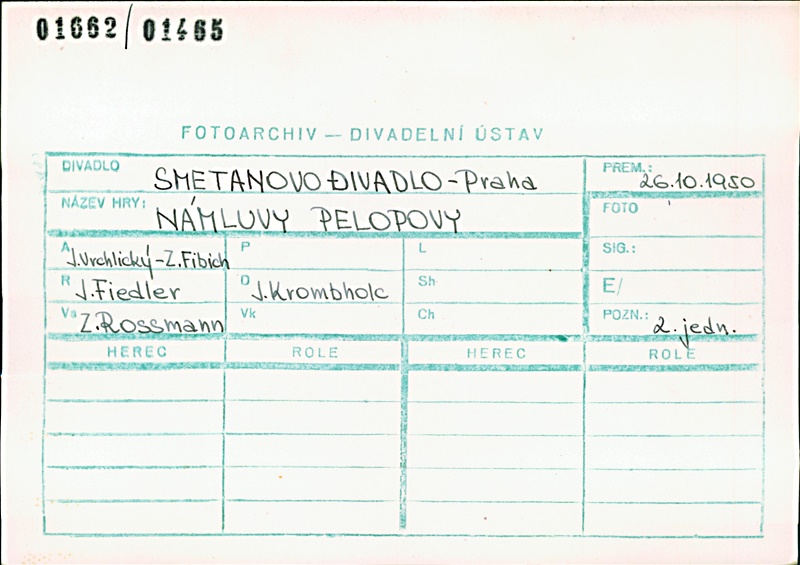 01662/01465
FOTOARCHIV — DIVADELNÍ ÚSTAV
DIVADLO SMETANOVO DIVADLO - Praha PREM.: 26.10.1950
NÁZEV HRY: NÁMLUVY PELOPOVY FOTO
A J.Vrchlický - Z.Fibich P L SIG.:
R J.Fiedler D J.Krombholc Sh E/
Vs Z.Rossmann Vk Ch POZN.: 2. jedn.
HEREC ROLE HEREC ROLE